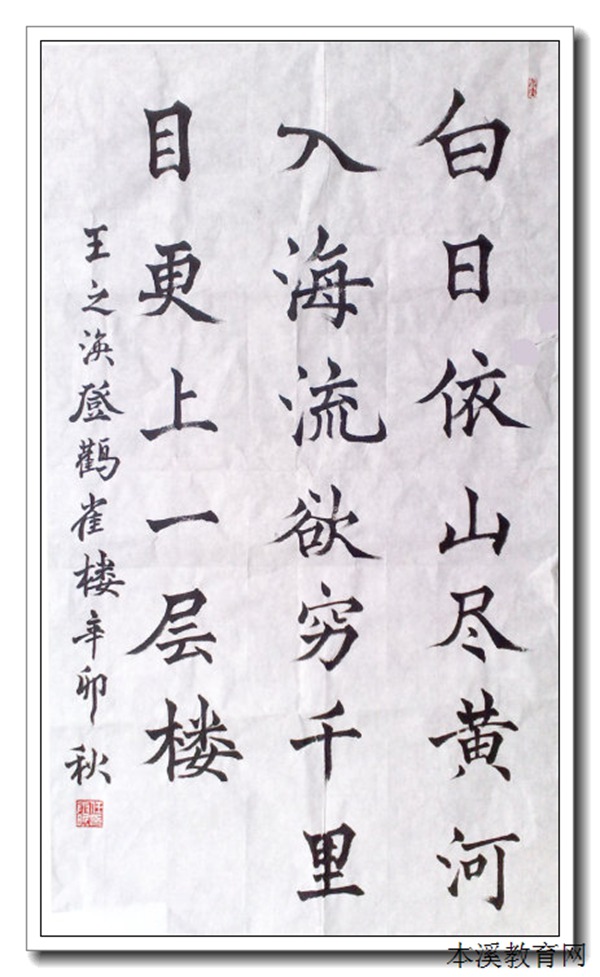 白日依山尽黄河
入海流欲穷千里
目更上一层楼
王之涣登鹳雀楼辛卯秋
本溪教育网